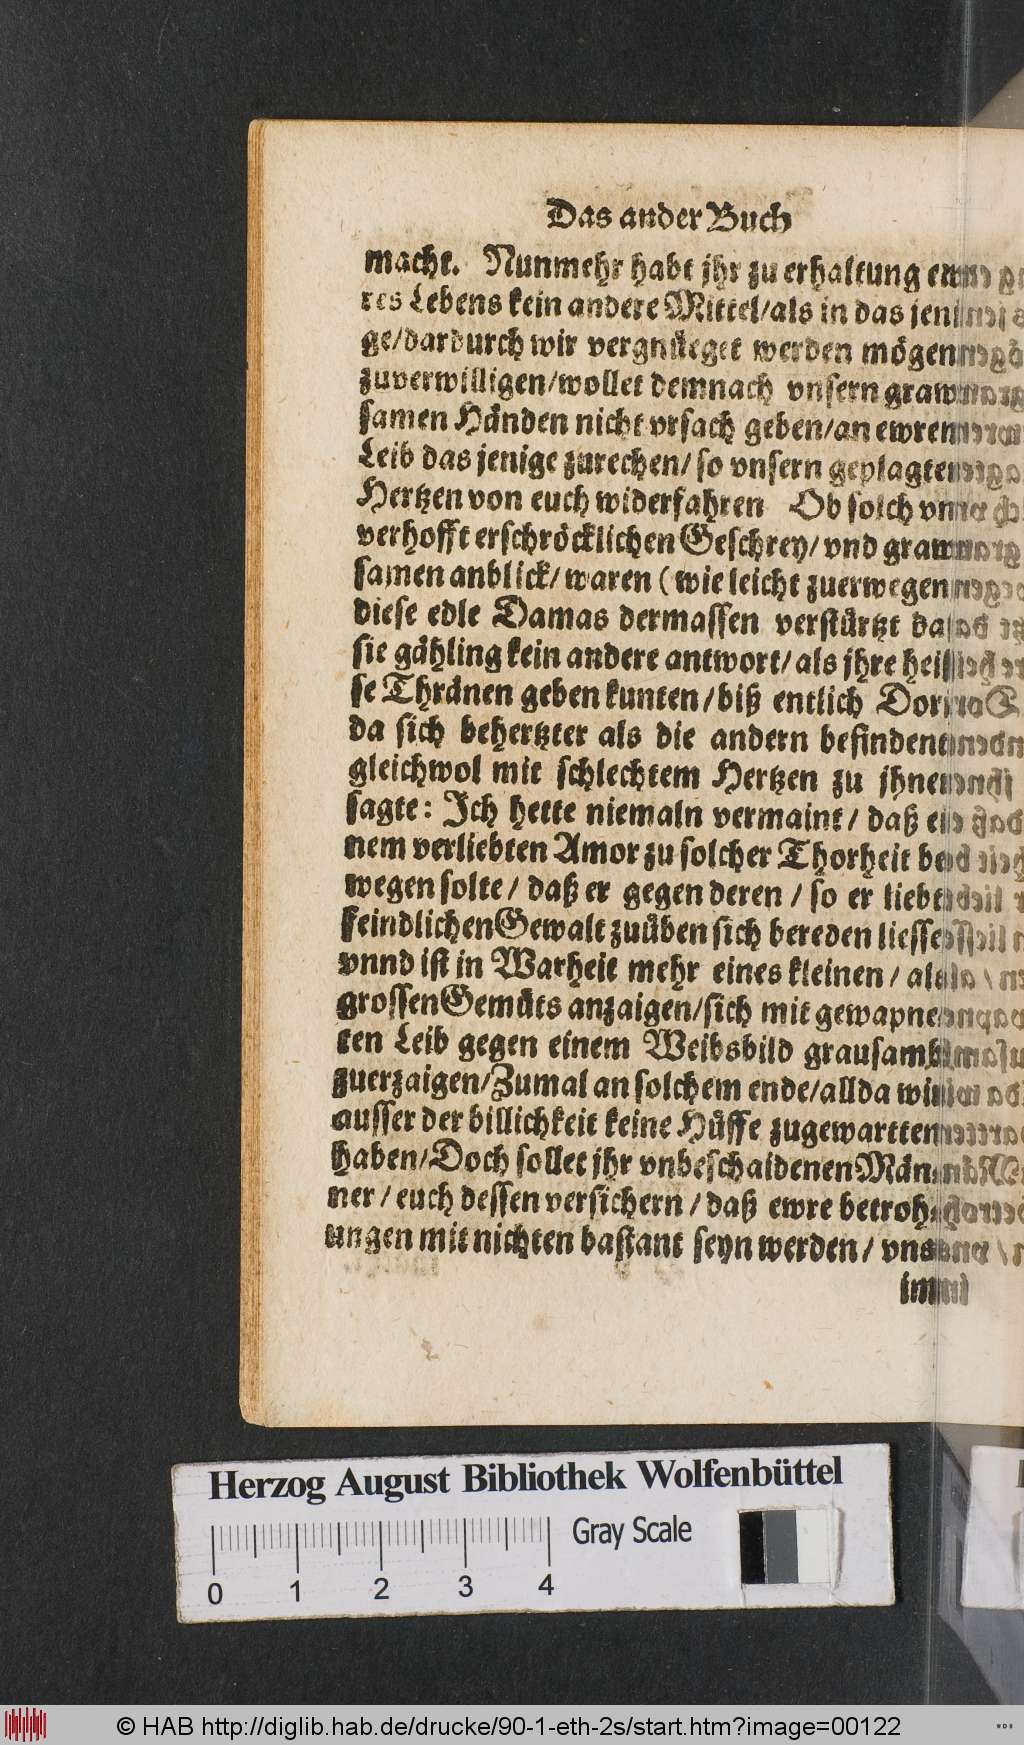 Das ander Buch
macht. Nunmehr habt jhr zu erhaltung ew
res Lebens kein andere Mittel/als in das jeni
ge/dardurch wir vergnüeget werden mögen
zuverwilligen/wollet demnach vnsern graw
samen Händen nicht vrsach geben/an ewrem
Leib das jenige zurechen/ so vnsern geplagten
Hertzen von euch widerfahren Ob solch vn
verhofft erschröcklichen Geschrey/ vnd graw
samen anblick/ waren (wie leicht zuerwegen
diese edle Damas dermassen verstürtzt das
sie gähling kein andere antwort/ als jhre heis
se Thränen geben kunten/biß entlich Dorin
da sich behertzter als die andern befindent
gleichwol mit schlechtem Hertzen zu jhnen
sagte: Ich hette niemaln vermaint/ daß ei
nem verliebten Amor zu solcher Thorheit be
wegen solte/ daß er gegen deren / so er liebt
feindlichen Gewalt zuüben sich bereden liesse
vnnd ist in Warheit mehr eines kleinen/ als
grossen Gemüts anzaigen/sich mit gewapne
ten Leib gegen einem Weibsbild grausamb
zuerzaigen/Zumal an solchem ende/allda wir
ausser der billichkeit keine Hüffe zugewartten
haben/Doch sollet jhr vnbeschaidenen Män
ner/ euch dessen versichern/ daß ewre betroh
ungen mit nichten bastant seyn werden/ vns
im
Herzog August Bibliothek Wolfenbüttel
Gray Scale
0 1 2 3 4
© HAB http://diglib.hab.de/drucke/90-1-eth-2s/start.htm?image=00122